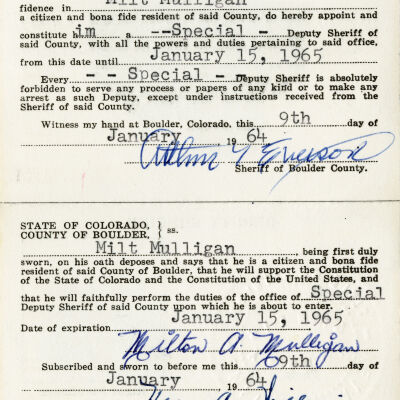 fidence in Milt Mulligan
a citizen and bona fide resident of said County, do hereby appoint and
constitute im a --Special - Deputy Sheriff of
said County, with all the powers and duties pertaining to said office,
from this date until January 15, 1965
Every - - Special - Deputy Sheriff is absolutely
forbidden to serve any process or papers of any kind or to make any
arrest as such Deputy, except under instructions received from the
Sheriff of said County.
Witness my hand at Boulder, Colorado, this 9th day of
January, 1964
Arthur T Everson
Sheriff of Boulder County.
STATE OF COLORADO, } ss.
COUNTY OF BOULDER, {
Milt Mulligan, being first duly
sworn, on his oath deposes and says that he is a citizen and bona fide
resident of said County of Boulder, that he will support the Constitution
of the State of Colorado and the Constitution of the United States, and
that he will faithfully perform the duties of the office of Special
Deputy Sheriff of said County upon which he is about to enter.
Date of expiration January 15, 1965
Milton A. Mulligan
Subscribed and sworn to before me this 9th day of
January 1964